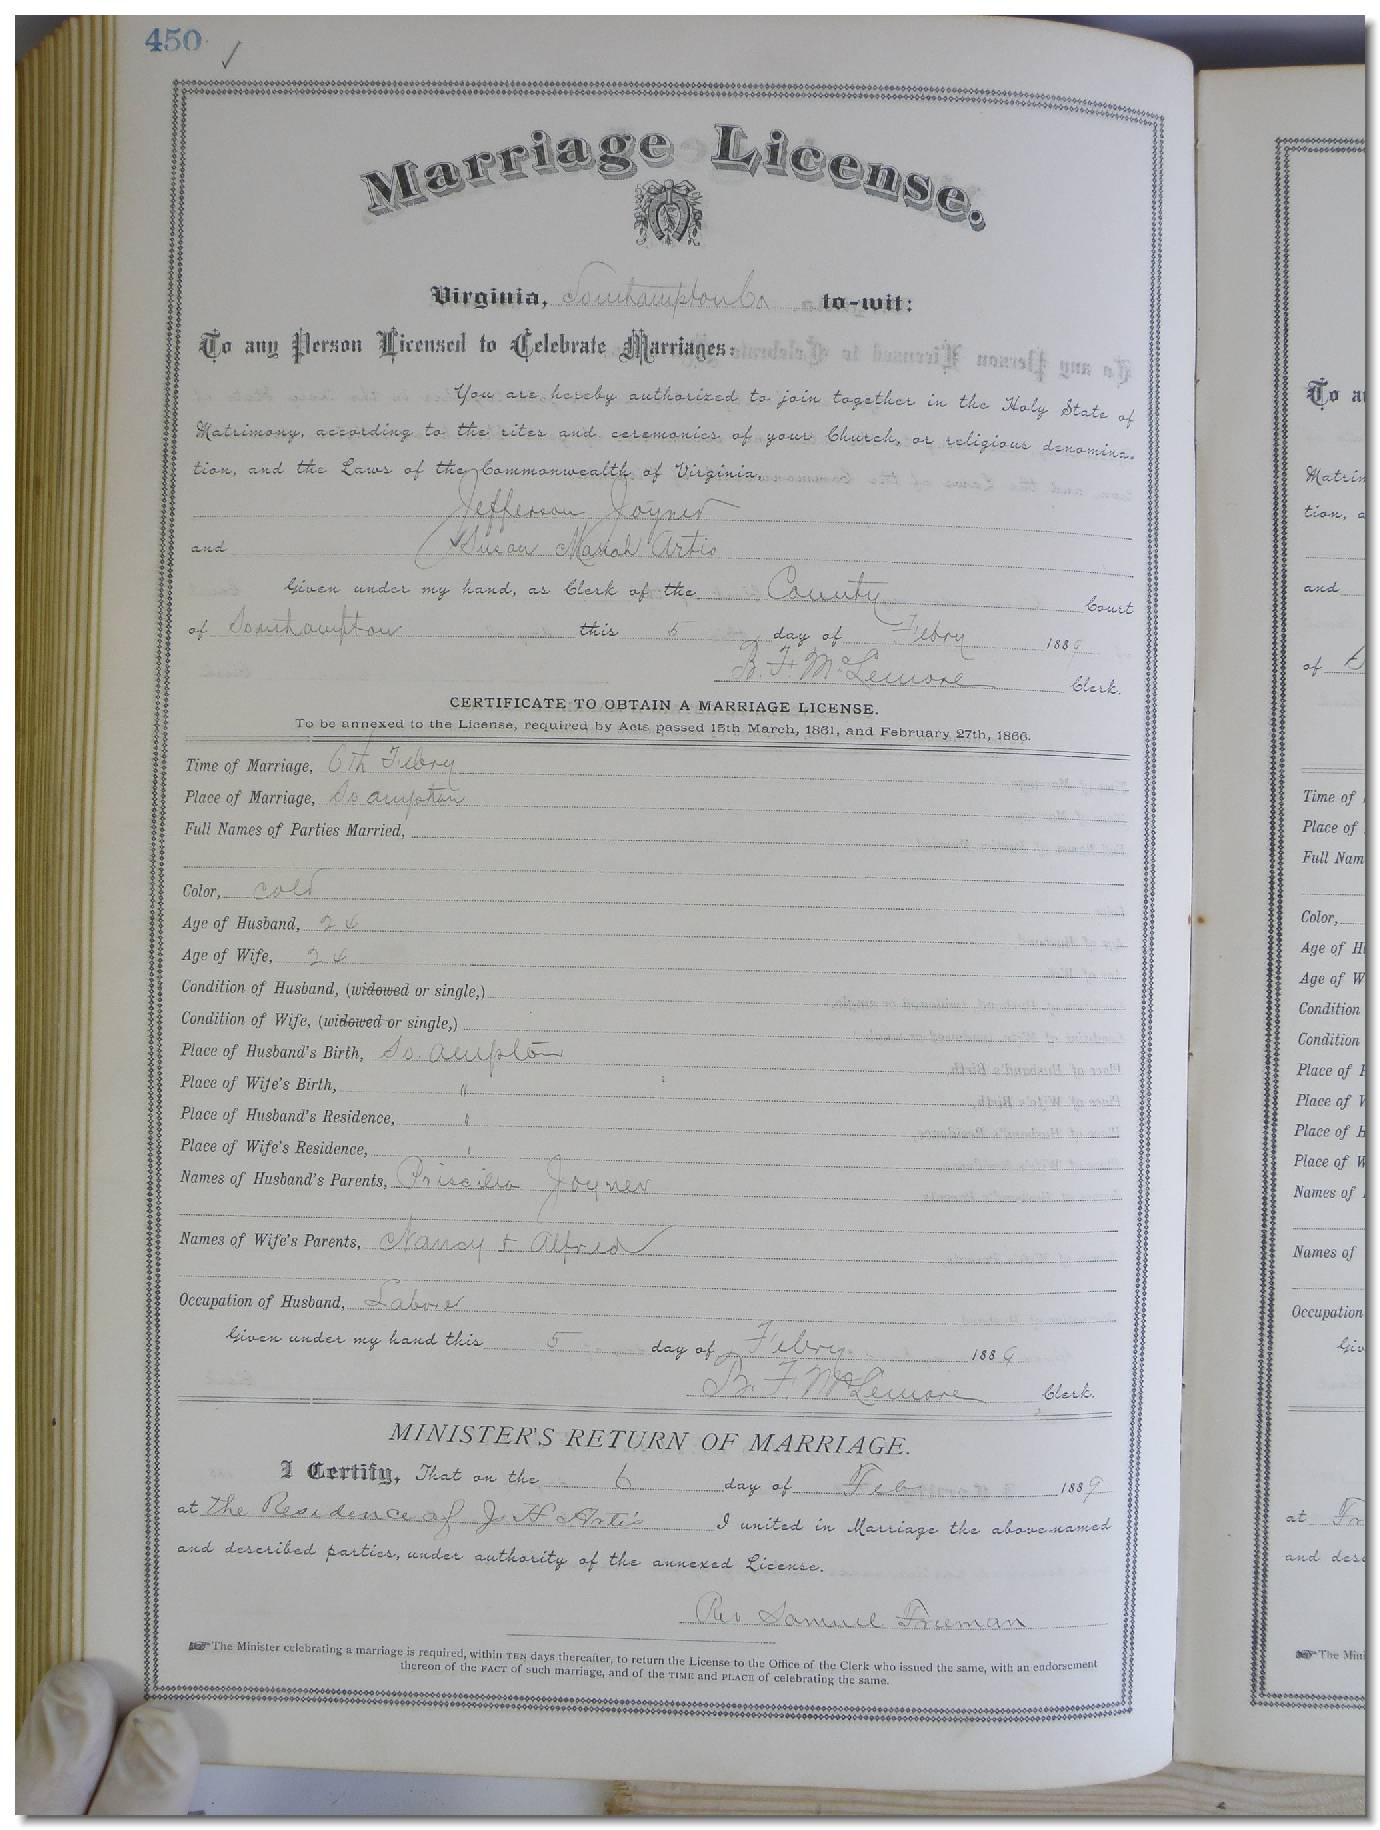 450
Marriage License.
Virginia, Southampton Co to-wit:
To any Person Licensed to Celebrate Marriages:
You are hereby authorized to join together in the Holy State of
Matrimony, according to the rites and ceremonies of your Church, or religious denomina-
tion, and the Laws of the Commonwealth of Virginia.
Jefferson Joyner
and Susan Artis
Given under my hand, as Clerk of the County Court
of Southampton this 5 day of Febry 1889
B. F. McLemore Clerk.
CERTIFICATE TO OBTAIN A MARRIAGE LICENSE.
To be annexed to the License, required by Acts passed 15th March, 1861, and February 27th, 1866.
Time of Marriage, 6th Febry
Place of Marriage, So ampton
Full Names of Parties Married,
Color, cold
Age of Husband,
Age of Wife,
Condition of Husband, (widowed or single,)
Condition of Wife, (widowed or single,)
Place of Husband's Birth, So. ampton
Place of Wife's Birth, "
Place of Husband's Residence, "
Place of Wife's Residence, "
Names of Husband's Parents, Priscilla Joyner
Names of Wife's Parents, Nancy & Alfred
Occupation of Husband, Labore
Given under my hand this 5 day of Febry 1889
B. F. McLemore Clerk.
MINISTER'S RETURN OF MARRIAGE.
I Certify, That on the 6 day of Feb 1889
at the Residence of J H Artis I united in Marriage the above-named
and described parties, under authority of the annexed License.
Rev Samuel Freeman
The Minister celebrating a marriage is required, within TEN days thereafter, to return the License to the Office of the Clerk who issued the same, with an endorsement
thereon of the FACT of such marriage, and of the TIME and PLACE of celebrating the same.
To a
Matrim
tion, a
and
of
Time of
Place of
Full Nam
Color,
Age of H
Age of W
Condition
Condition
Place of H
Place of W
Place of H
Place of W
Names of
Names of
Occupation
Giv
at
and desc
The Mini